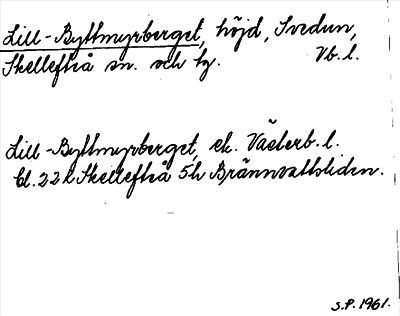 Lill-Byttmyrberget, höjd, Svedun,
Skellefteå sn. och hg. Vb. l.
Lill-Byttmyrberget, ek. Västerb. l.
bl. 22k Skellefteå 5h Brännvattsliden.
S.P. 1961.